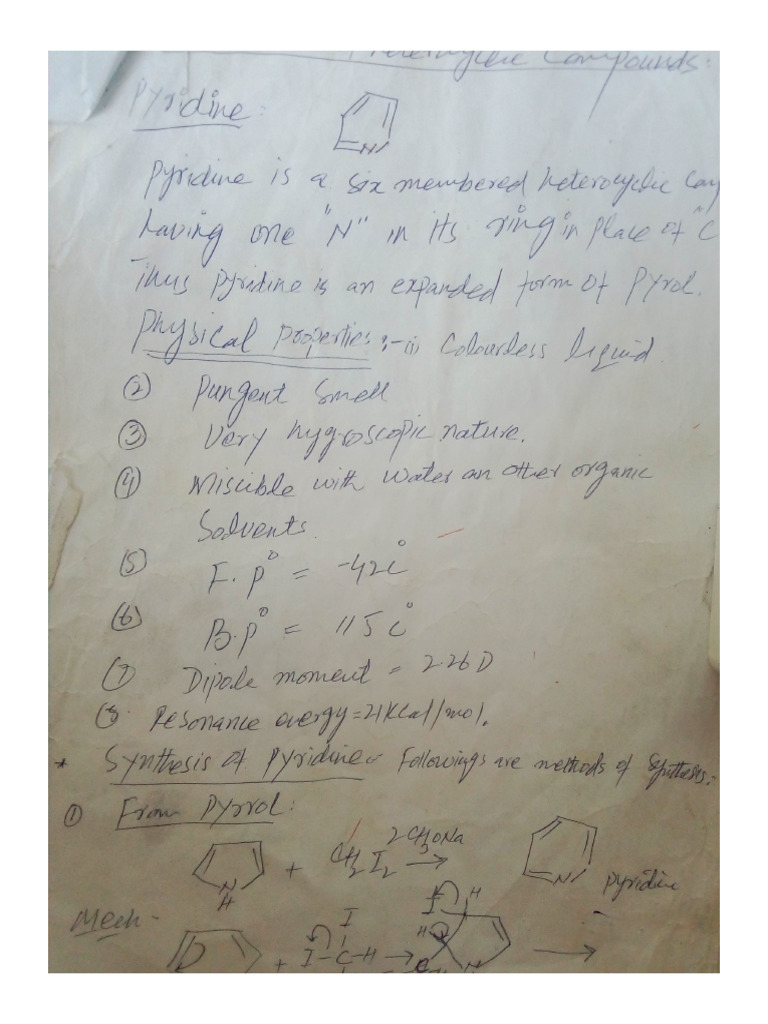 Heterocyclic Compounds:
Pyridine:
N
Pyridine is a six membered heterocyclic
having one "N" in its ring in place of "C
Thus pyridine is an expanded form of Pyrol.
Physical Properties:- (1) Colourless liquid.
(2) Pungent Smell
(3) Very hygroscopic nature.
(4) Miscible with water an other organic
Solvents.
(5) F.p° = -42c°
(6) B.p° = 115c°
(7) Dipole moment = 2.26D
(8) Resonance energy=21Kcal/mol.
* Synthesis of Pyridine- Followings are methods of Synthesis:-
(1) From Pyrrol:
N H + CH2I2 2CH3ONa → N Pyridine
Mech-
+ I-C-H → I H →